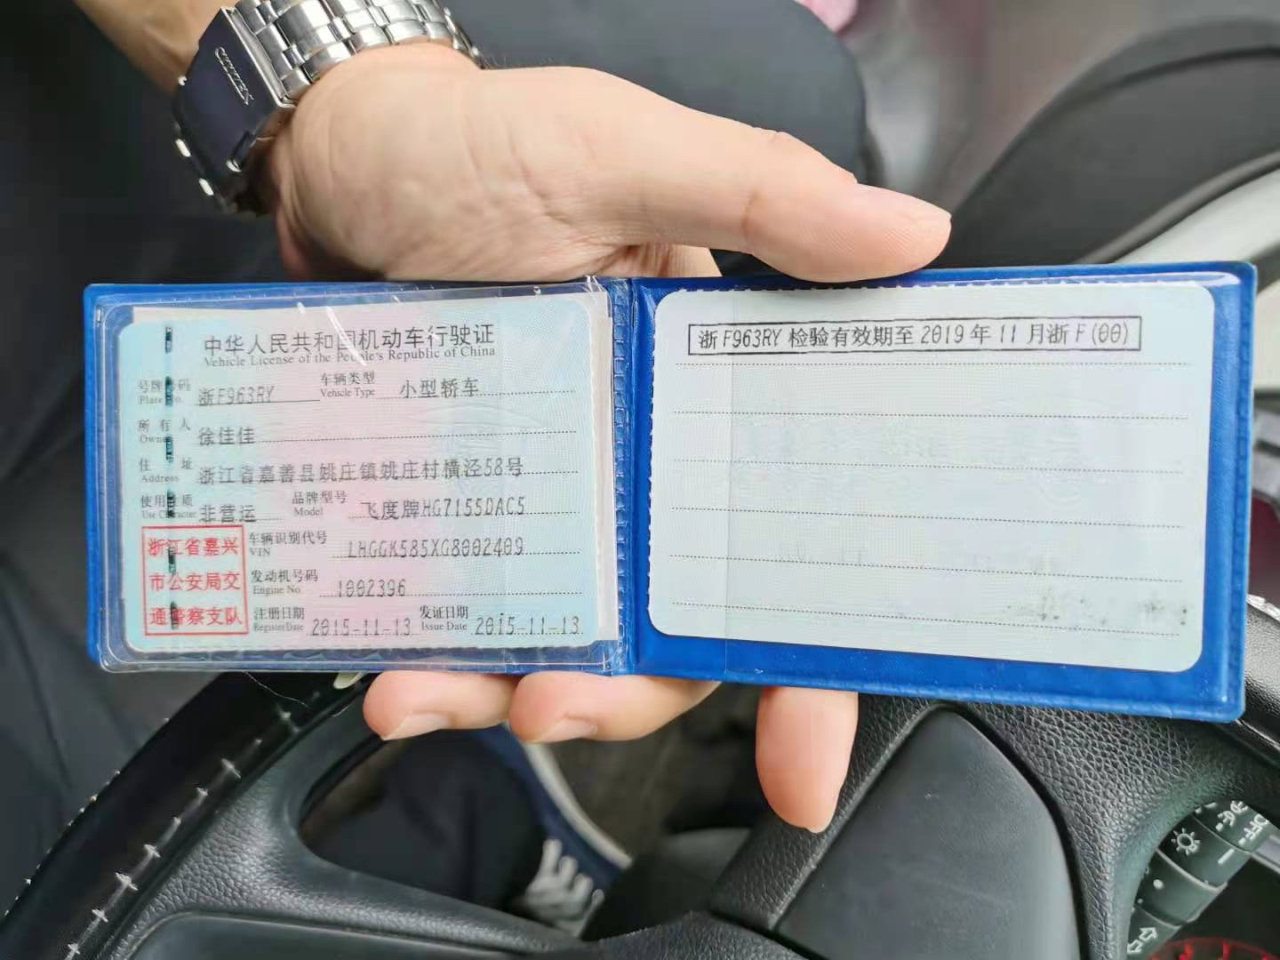 CITIZEN
中华人民共和国机动车行驶证
Vehicle License of the People's Republic of China
号牌号码 浙F963RY 车辆类型 小型轿车
Plate No. Vehicle Type
所有人 徐佳佳
Owner
住址 浙江省嘉善县姚庄镇姚庄村横泾58号
Address
使用性质 非营运 品牌型号 飞度牌HG7155DAC5
Use Character Model
浙江省嘉兴
市公安局交
通警察支队
车辆识别代号 LHGGK585XG8002409
VIN
发动机号码 1002396
Engine No.
注册日期 2015-11-13 发证日期 2015-11-13
Register Date Issue Date
浙F963RY 检验有效期至 2019 年 11 月浙 F(00)
OFF